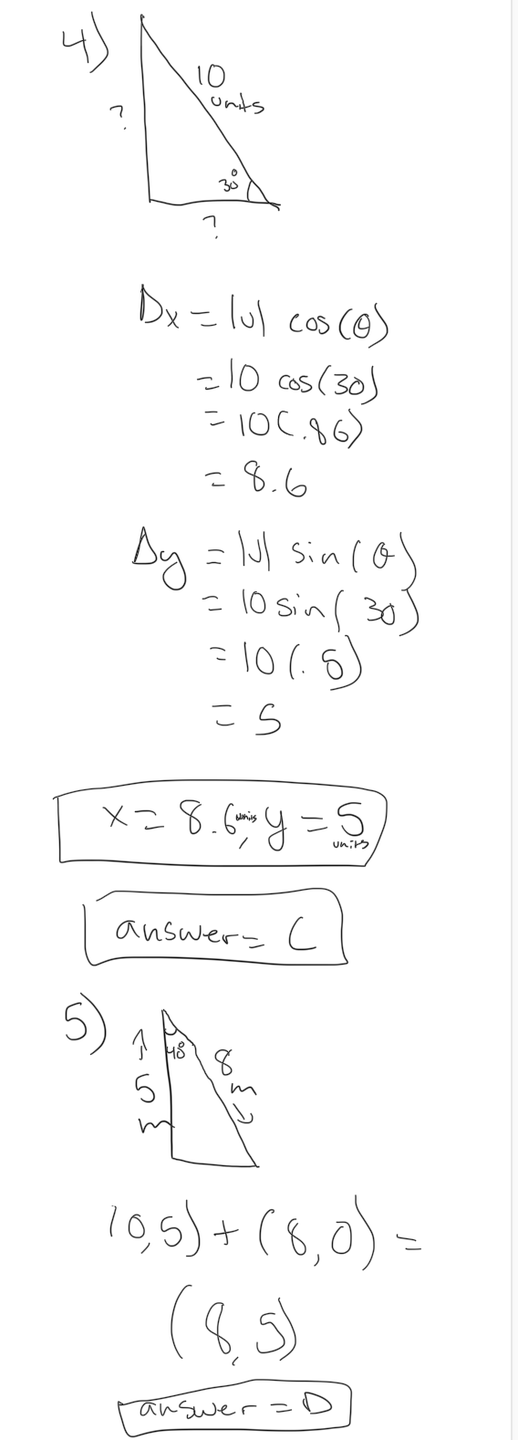 4)
10
units
?
30°
?
Dx = |v| cos(θ)
= 10 cos(30)
= 10(.86)
= 8.6
Δy = |v| sin(θ)
= 10 sin(30)
= 10(.5)
= 5
x = 8.6 units, y = 5 units
answer = C
5)
↑ 48° 8
5 m ↓
m
(0,5) + (8,0) =
(8,5)
answer = D